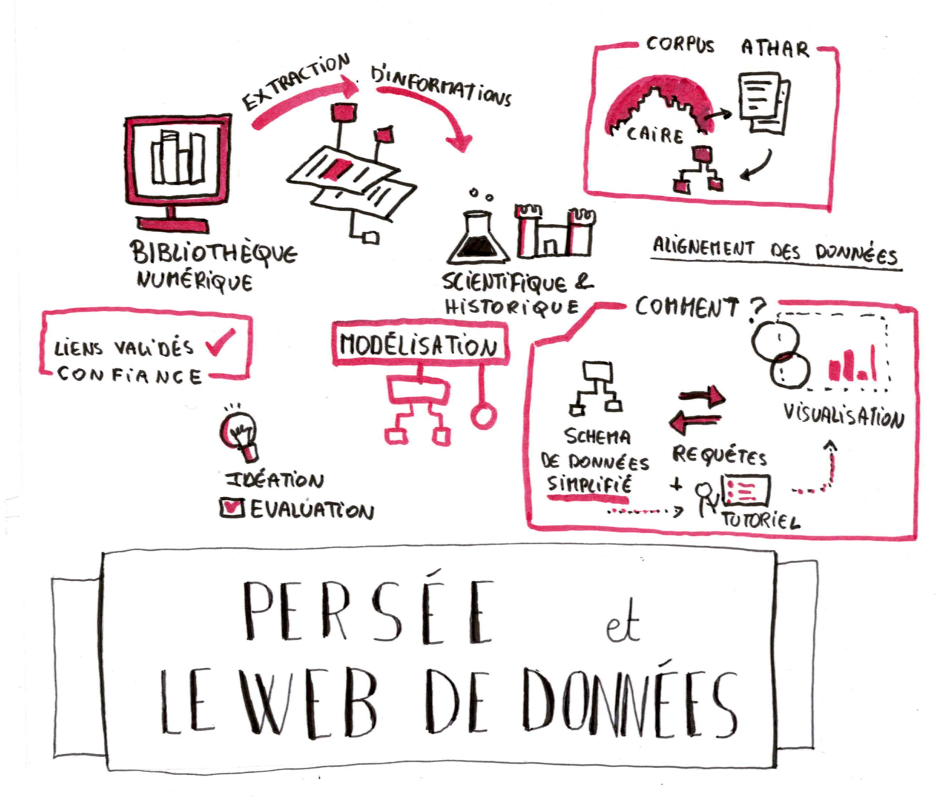 EXTRACTION D'INFORMATIONS
CORPUS ATHAR
CAIRE
BIBLIOTHÈQUE
NUMÉRIQUE
SCIENTIFIQUE &
HISTORIQUE
ALIGNEMENT DES DONNÉES
LIENS VALIDÉS
CONFIANCE
MODÉLISATION
COMMENT ?
VISUALISATION
SCHEMA
DE DONNÉES
SIMPLIFIÉ
REQUÊTES
+
TUTORIEL
IDÉATION
EVALUATION
PERSÉE et
LE WEB DE DONNÉES